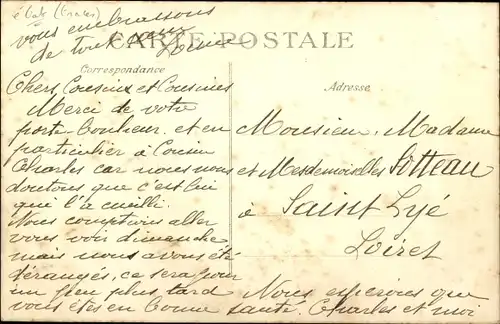 vous embrassons
de tout
CARTE POSTALE
Correspondance
Adresse
Chers Cousins et Cousines
Merci de votre
porte-bonheur et en
particulier à Cousin
Charles car nous nous
doutons que c'est lui
qui l'a cueilli.
Nous comptions aller
vous voir dimanche
mais nous avons été
dérangés, ce sera pour
un peu plus tard Nous espérons que
vous êtes en bonne santé. Charles et moi
Monsieur, Madame
et Mesdemoiselles Sotteau
à Saint Lyé
Loiret